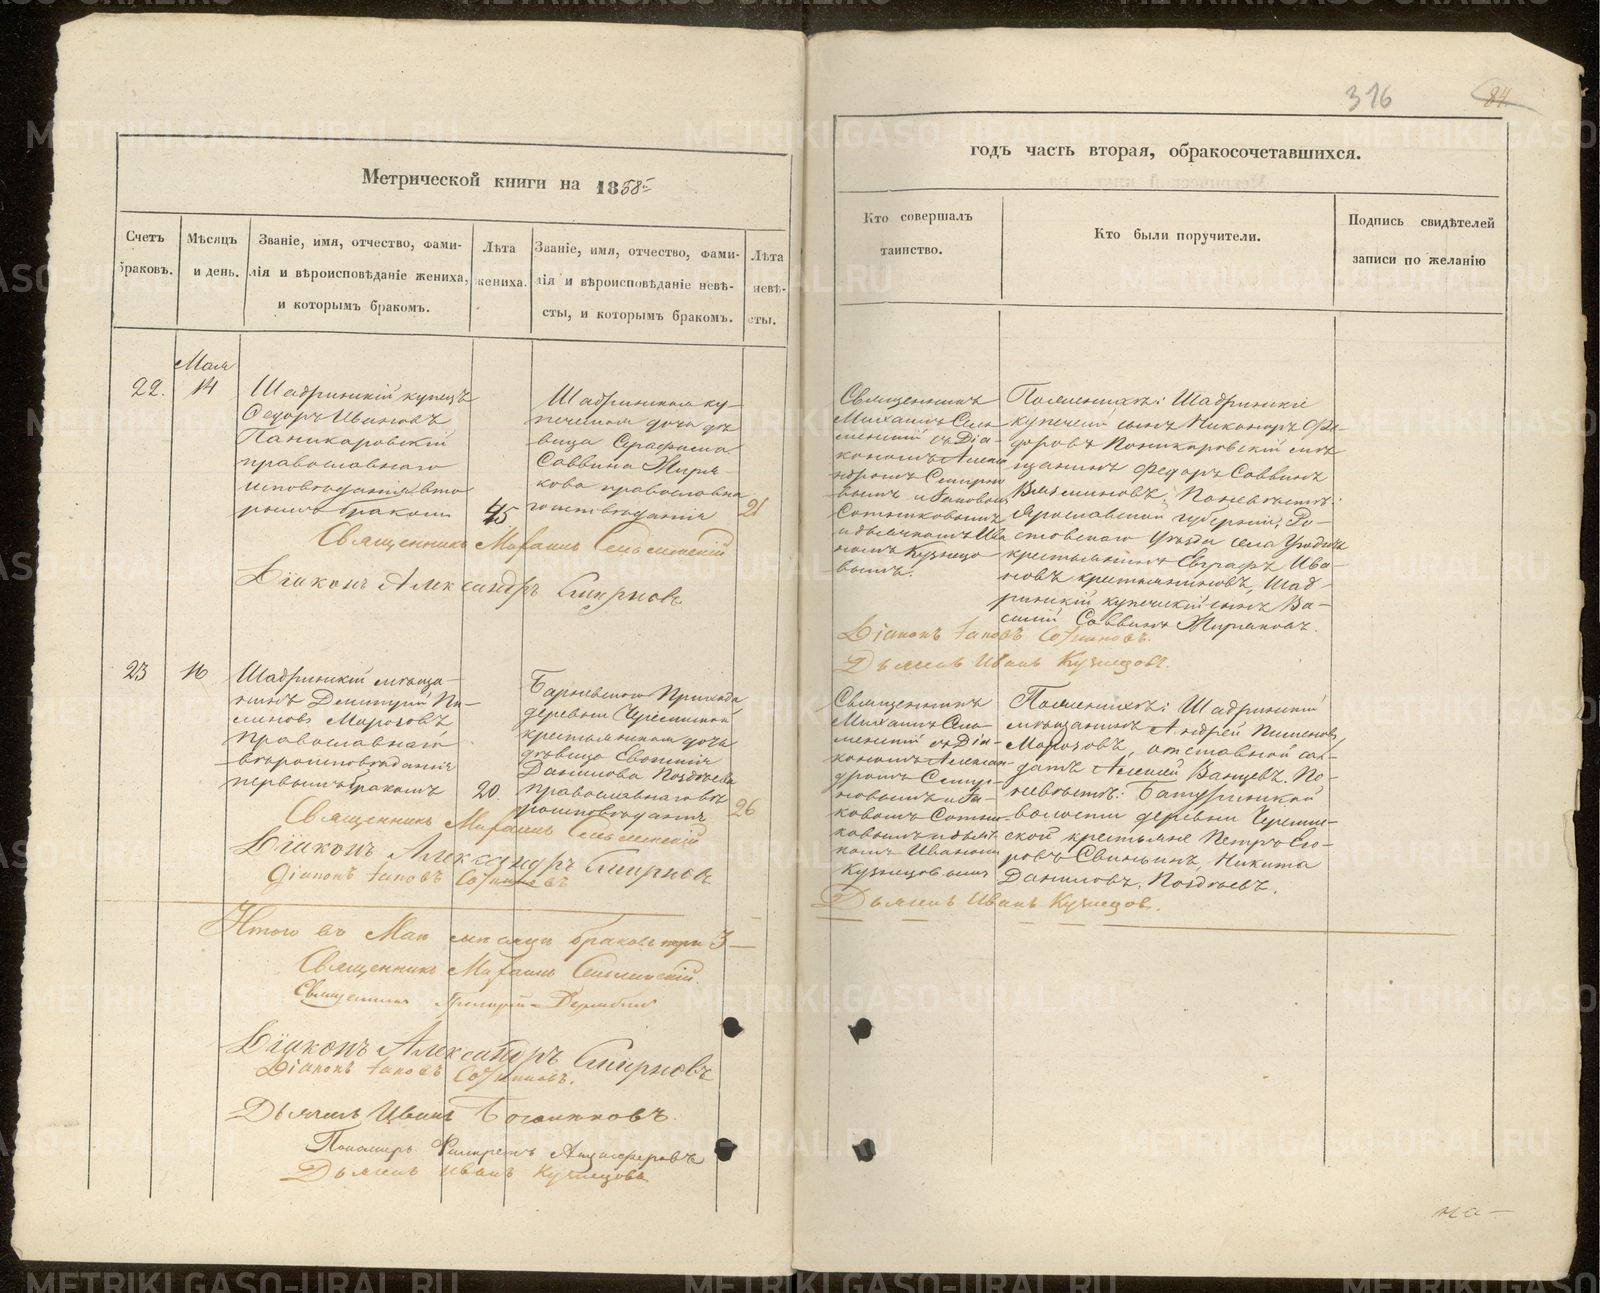 316
84
Метрической книги на 1858й
годъ часть вторая, обракосочетавшихся.
Счетъ
браковъ.
Мѣсяцъ
и день.
Званіе, имя, отчество, фами-
лія и вѣроисповѣданіе жениха,
и которымъ бракомъ.
Лѣта
жениха.
Званіе, имя, отчество, фами-
лія и вѣроисповѣданіе невѣ-
сты, и которымъ бракомъ.
Лѣта
невѣ-
сты.
Кто совершалъ
таинство.
Кто были поручители.
Подпись свидѣтелей
записи по желанію
22.
Мая
14
Шадринскій купецъ
Ѳедоръ Ивановъ
Паникаровскій
православнаго
исповѣданія вто
рымъ бракомъ
45
Шадринская ку-
печеская дочь дѣ
вица Серафима
Саввина Жиря-
кова православна
го исповѣданія
21
Священникъ
Михаилъ
съ Діа-
кономъ Алекса
ндромъ Смирно
вымъ и Іаковомъ
Сотниковымъ
и дьячкомъ Ива
номъ Кузнецо
вымъ.
По женихѣ: Шадринскіе
купеческій сынъ Никаноръ Ѳе-
доровъ Паникаровскій мѣ
щанинъ Ѳедоръ Саввинъ
По невѣстѣ:
Ярославской губерніи, Ро-
стовскаго уѣзда села Угодичь
крестьянинъ Евграфъ Ива-
новъ Крестьяниновъ, Шад
ринскій купеческій сынъ Ва-
силій Саввинъ Жиряковъ.
Священникъ Михаилъ
Діаконъ Александръ Смирновъ
Діаконъ Іаковъ Сотниковъ.
Дьячекъ Иванъ Кузнецовъ.
23
16
Шадринскій мѣща-
нинъ Димитрій Пи-
меновъ Морозовъ
православнаго
вѣроисповѣданія
первымъ бракомъ
20
Барневского Прихода
деревни Черемисской
крестьянская дочь
дѣвица Евфимія
Данилова Поздѣева
православнаго вѣ
роисповѣданія
26
Священникъ
Михаилъ
съ Діа-
кономъ Алексан
дромъ Смир-
новымъ и Іа-
ковомъ Сотни-
ковымъ и дьяч
комъ Иваномъ
Кузнецовымъ
По женихѣ: Шадринскій
мѣщанинъ Андрей Пименовъ
Морозовъ, отставной сол
датъ Алексѣй По
невѣстѣ: Батуринской
волости деревни Черемис-
ской крестьяне Петръ Его-
ровъ Свиньинъ, Никита
Даниловъ Поздѣевъ.
Священникъ Михаилъ
Діаконъ Александръ Смирновъ
Діаконъ Іаковъ Сотниковъ
Дьячекъ Иванъ Кузнецовъ.
Итого въ Маѣ мѣсяцѣ браковъ три 3
Священникъ Михаилъ
Священникъ Григорій
Діаконъ Александръ Смирновъ
Діаконъ Іаковъ Сотниковъ.
Дьячекъ Иванъ
Пономарь
Дьячекъ Иванъ Кузнецовъ
METRIKI.GASO-URAL.RU